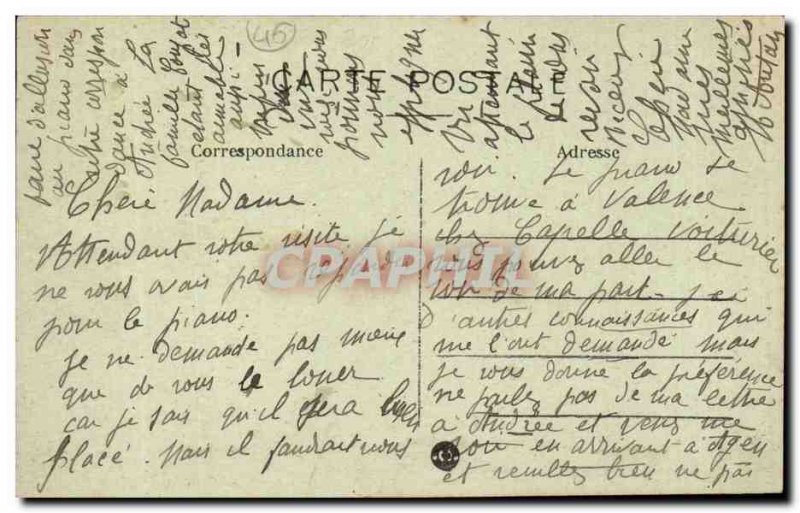 CARTE POSTALE
Correspondance
Adresse
45
Chère Madame.
Attendant votre visite je
ne vous avais pas répondu
pour le piano.
Je ne demande pas mieux
que de vous le louer
car je sais qu'il sera bien
placé. Mais il faudrait nous
voir. Le piano se
trouve à Valence
chez Capelle voiturier
vous pouvez aller le
voir de ma part. J'ai
d'autres connaissances qui
me l'ont demandé mais
je vous donne la préférence
ne parlez pas de ma lettre
à Andrée et venez me
voir en arrivant à Agen
et veuillez bien ne pas
faire d'allusion
au piano dans
votre correspon
dance à
Andrée La
famille
étant
aimable
aussi
enfin
nous
nous
expliquer
En
attendant
le plaisir
de vous
revoir
recevez
Chère
Madame
mes
meilleures
amitiés
CPAPHIL